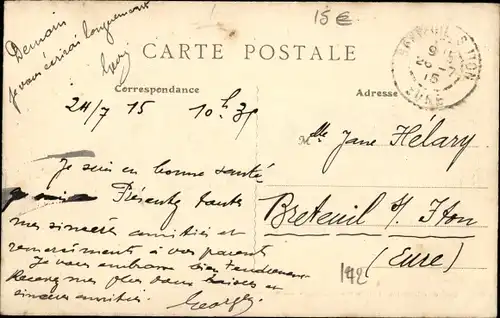 15€
Demain
je vous écrirai longuement
CARTE POSTALE
Correspondance
Adresse
BRETEUIL S ITON
EURE
24/7 15 10h 35
Je suis en bonne santé.
Présentez toutes
mes sincères amitiés et
remerciements à vos parents
Je vous embrasse bien tendrement
Recevez mes plus doux baisers et
sincères amitiés.
Georges
Mlle Jane Hélary
Breteuil s/ Iton
(Eure)
142